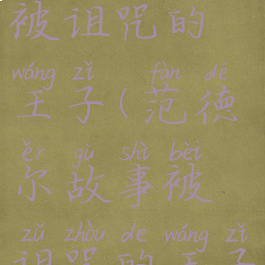 被诅咒的
wáng zǐ fàn dé
王子(范德
ěr gù shì bèi
尔故事被
zǔ zhòu de wáng zǐ
诅咒的王子